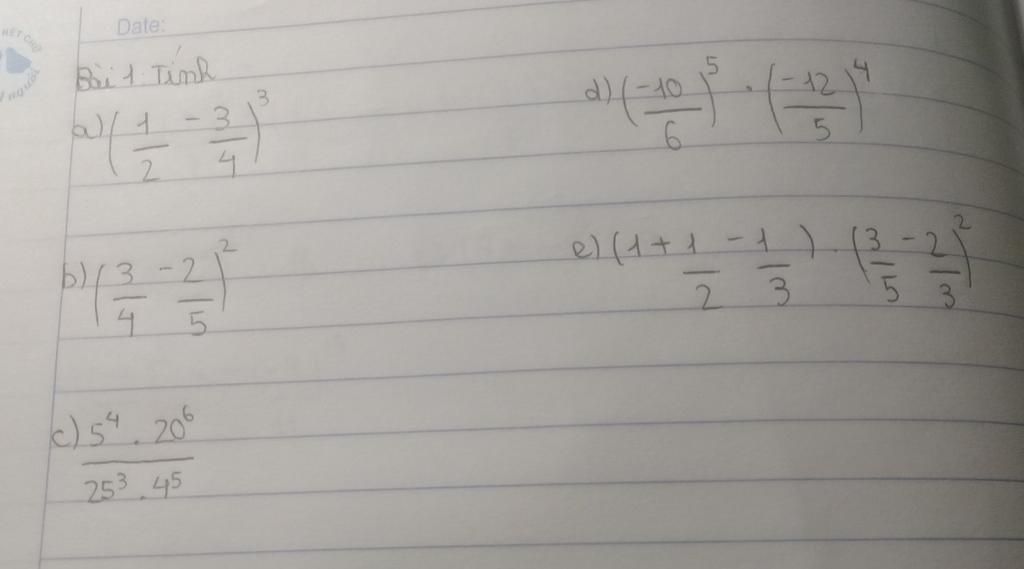 Date:
HẾT CHỮ
NGƯỜI
Bài 1: Tính
a) (1/2 - 3/4)^3
b) (3/4 - 2/5)^2
c) 5^4 . 20^6 / 25^3 . 4^5
d) (-10/6)^5 . (-12/5)^4
e) (1 + 1/2 - 1/3) . (3/5 - 2/3)^2